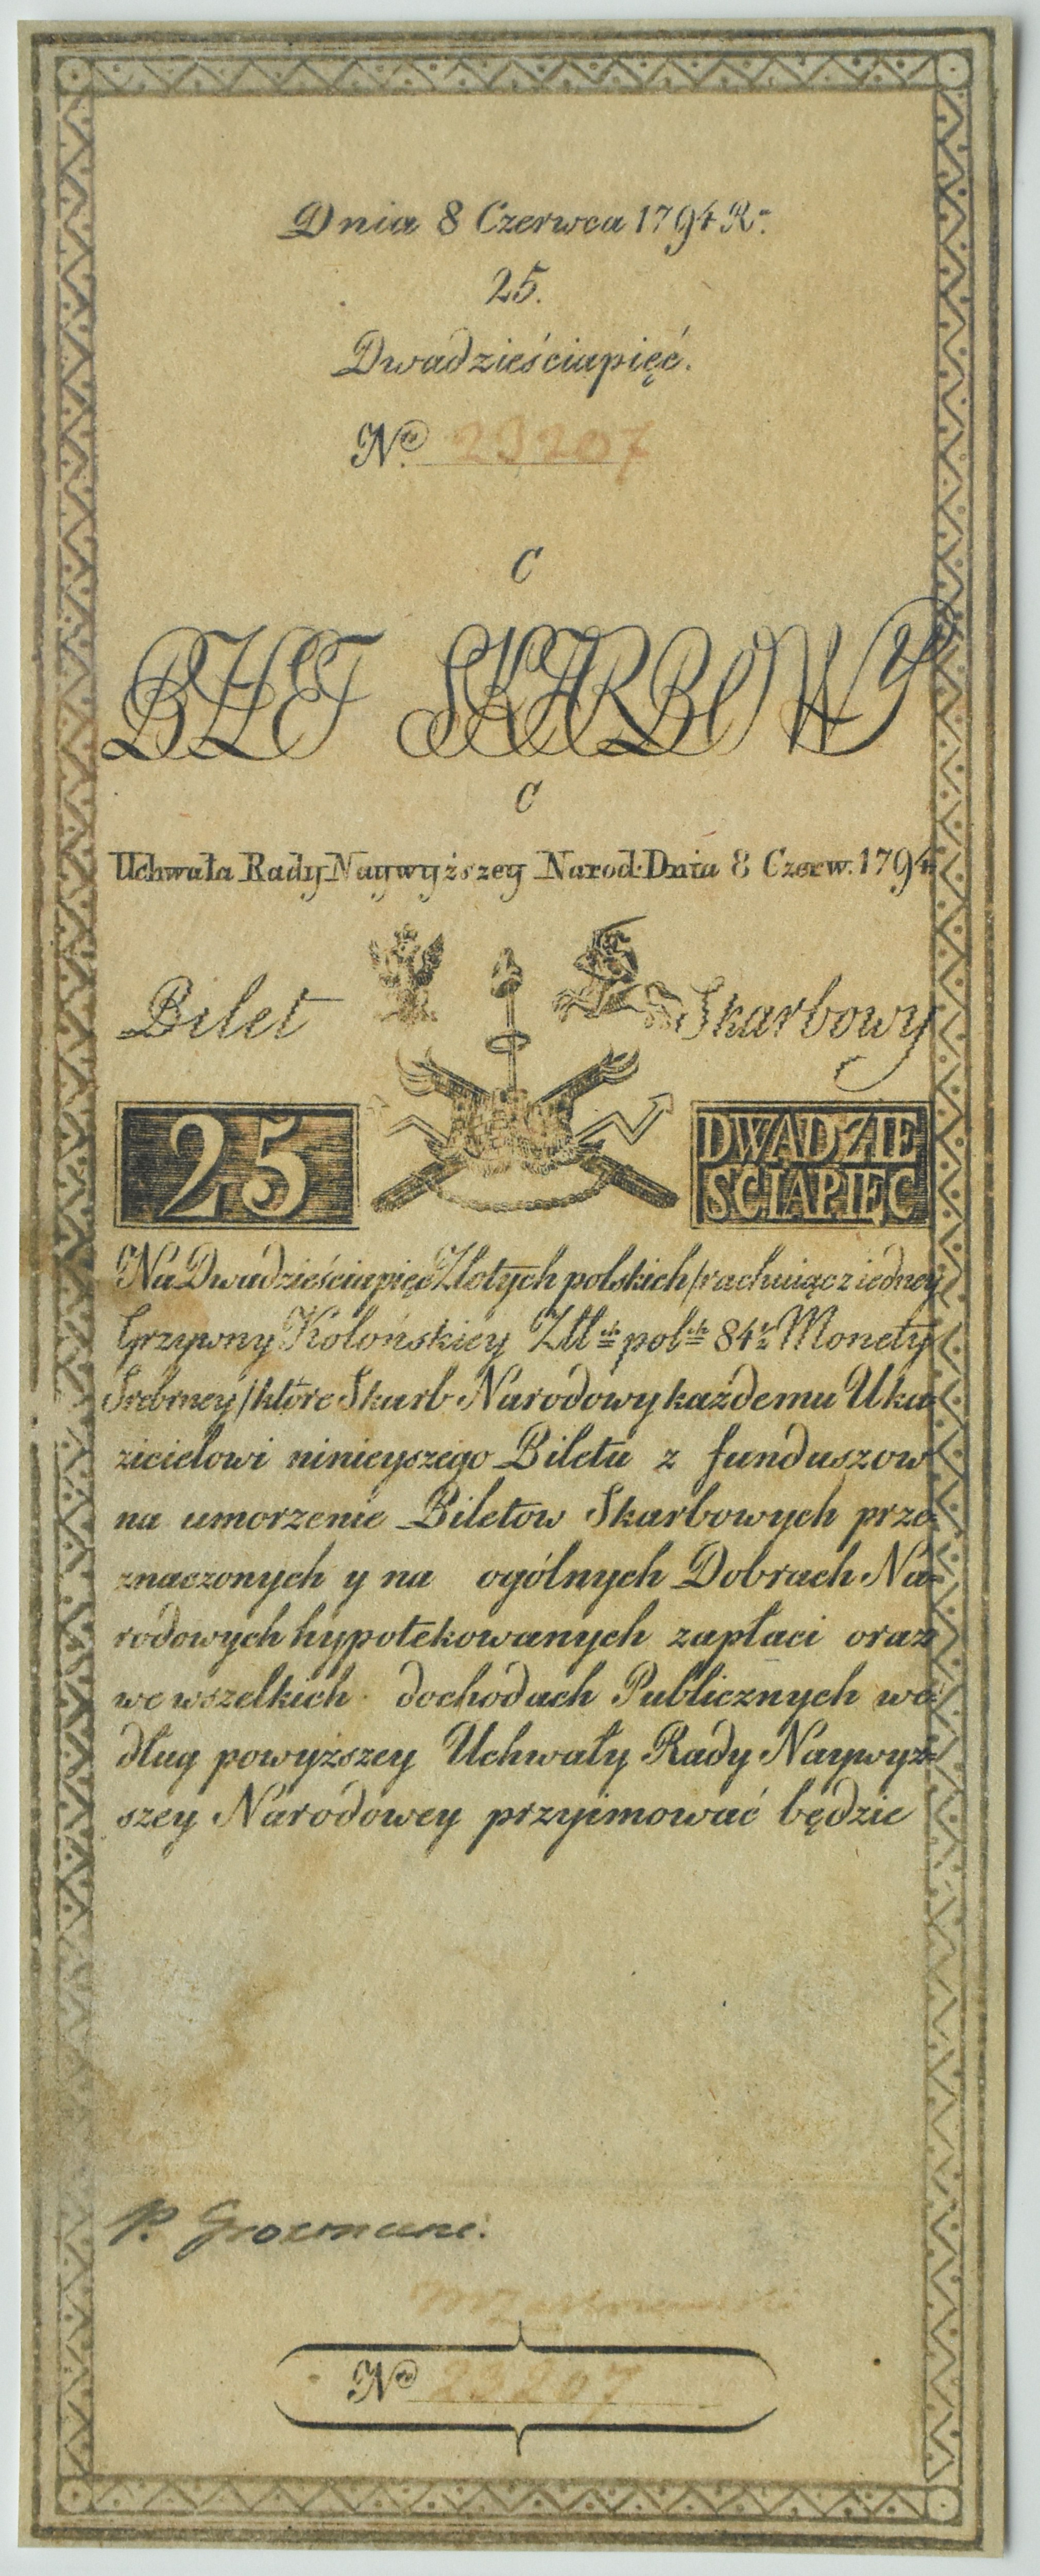 Dnia 8 Czerwca 1794 R:
25.
Dwadzieściapięć.
N<sup>ro</sup> 23207
C
BILET SKARBOWY
C
Uchwała Rady Naywyższey Narod: Dnia 8 Czerw. 1794
Bilet Skarbowy
25 DWADZIE
ŚCIAPIĘĆ
Na Dwadzieściapięć Złotych polskich /rachuiąc z iedney
Grzywny Kolońskiey Złł<sup>ch</sup> pol<sup>ch</sup> 84½ Monety
Srebrney/ które Skarb Narodowy każdemu Uka=
zicielowi ninieyszego Biletu z funduszow
na umorzenie Biletow Skarbowych prze=
znaczonych y na ogólnych Dobrach Na=
rodowych hypotekowanych zapłaci oraz
we wszelkich dochodach Publicznych we=
dług powyższey Uchwały Rady Naywyż=
szey Narodowey przyimować będzie
P. Grozmani.
N<sup>ro</sup> 23207